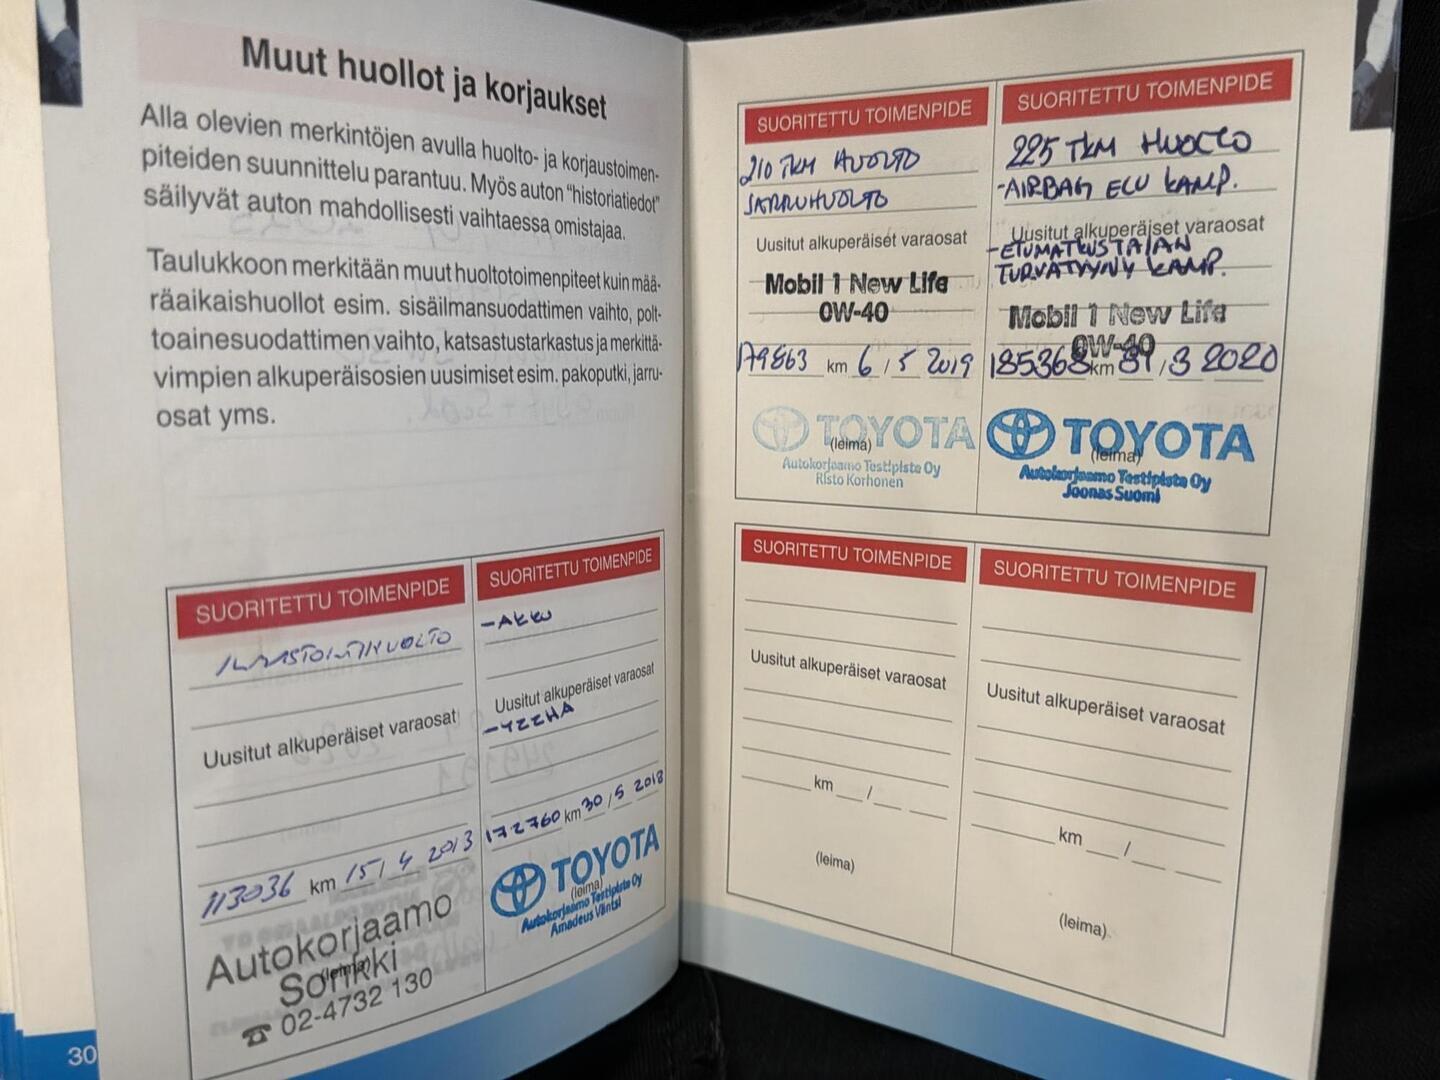 Muut huollot ja korjaukset
Alla olevien merkintöjen avulla huolto- ja korjaustoimen-
piteiden suunnittelu parantuu. Myös auton "historiatiedot"
säilyvät auton mahdollisesti vaihtaessa omistajaa.
Taulukkoon merkitään muut huoltotoimenpiteet kuin mää-
räaikaishuollot esim. sisäilmansuodattimen vaihto, polt-
toainesuodattimen vaihto, katsastustarkastus ja merkittä-
vimpien alkuperäisosien uusimiset esim. pakoputki, jarru-
osat yms.
SUORITETTU TOIMENPIDE
ILMASTOINTIHUOLTO
Uusitut alkuperäiset varaosat
113036 km 15/4 2013
Autokorjaamo
Sorikki
(leima)
☎ 02-4732 130
SUORITETTU TOIMENPIDE
-AKKU
Uusitut alkuperäiset varaosat
-YZZHA
172760 km 30/5 2018
TOYOTA
(leima)
Autokorjaamo Testipiste Oy
Amadeus Väntsi
30
SUORITETTU TOIMENPIDE
210 TKM HUOLTO
JARRUHUOLTO
Uusitut alkuperäiset varaosat
Mobil 1 New Life
0W-40
179863 km 6/5 2019
TOYOTA
(leima)
Autokorjaamo Testipiste Oy
Risto Korhonen
SUORITETTU TOIMENPIDE
225 TKM HUOLTO
-AIRBAG ECU KAMP.
Uusitut alkuperäiset varaosat
-ETUMATKUSTAJAN
TURVATYYNY KAMP.
Mobil 1 New Life
0W-40
185368 km 31/3 2020
TOYOTA
(leima)
Autokorjaamo Testipiste Oy
Joonas Suomi
SUORITETTU TOIMENPIDE
Uusitut alkuperäiset varaosat
km /
(leima)
SUORITETTU TOIMENPIDE
Uusitut alkuperäiset varaosat
km /
(leima)